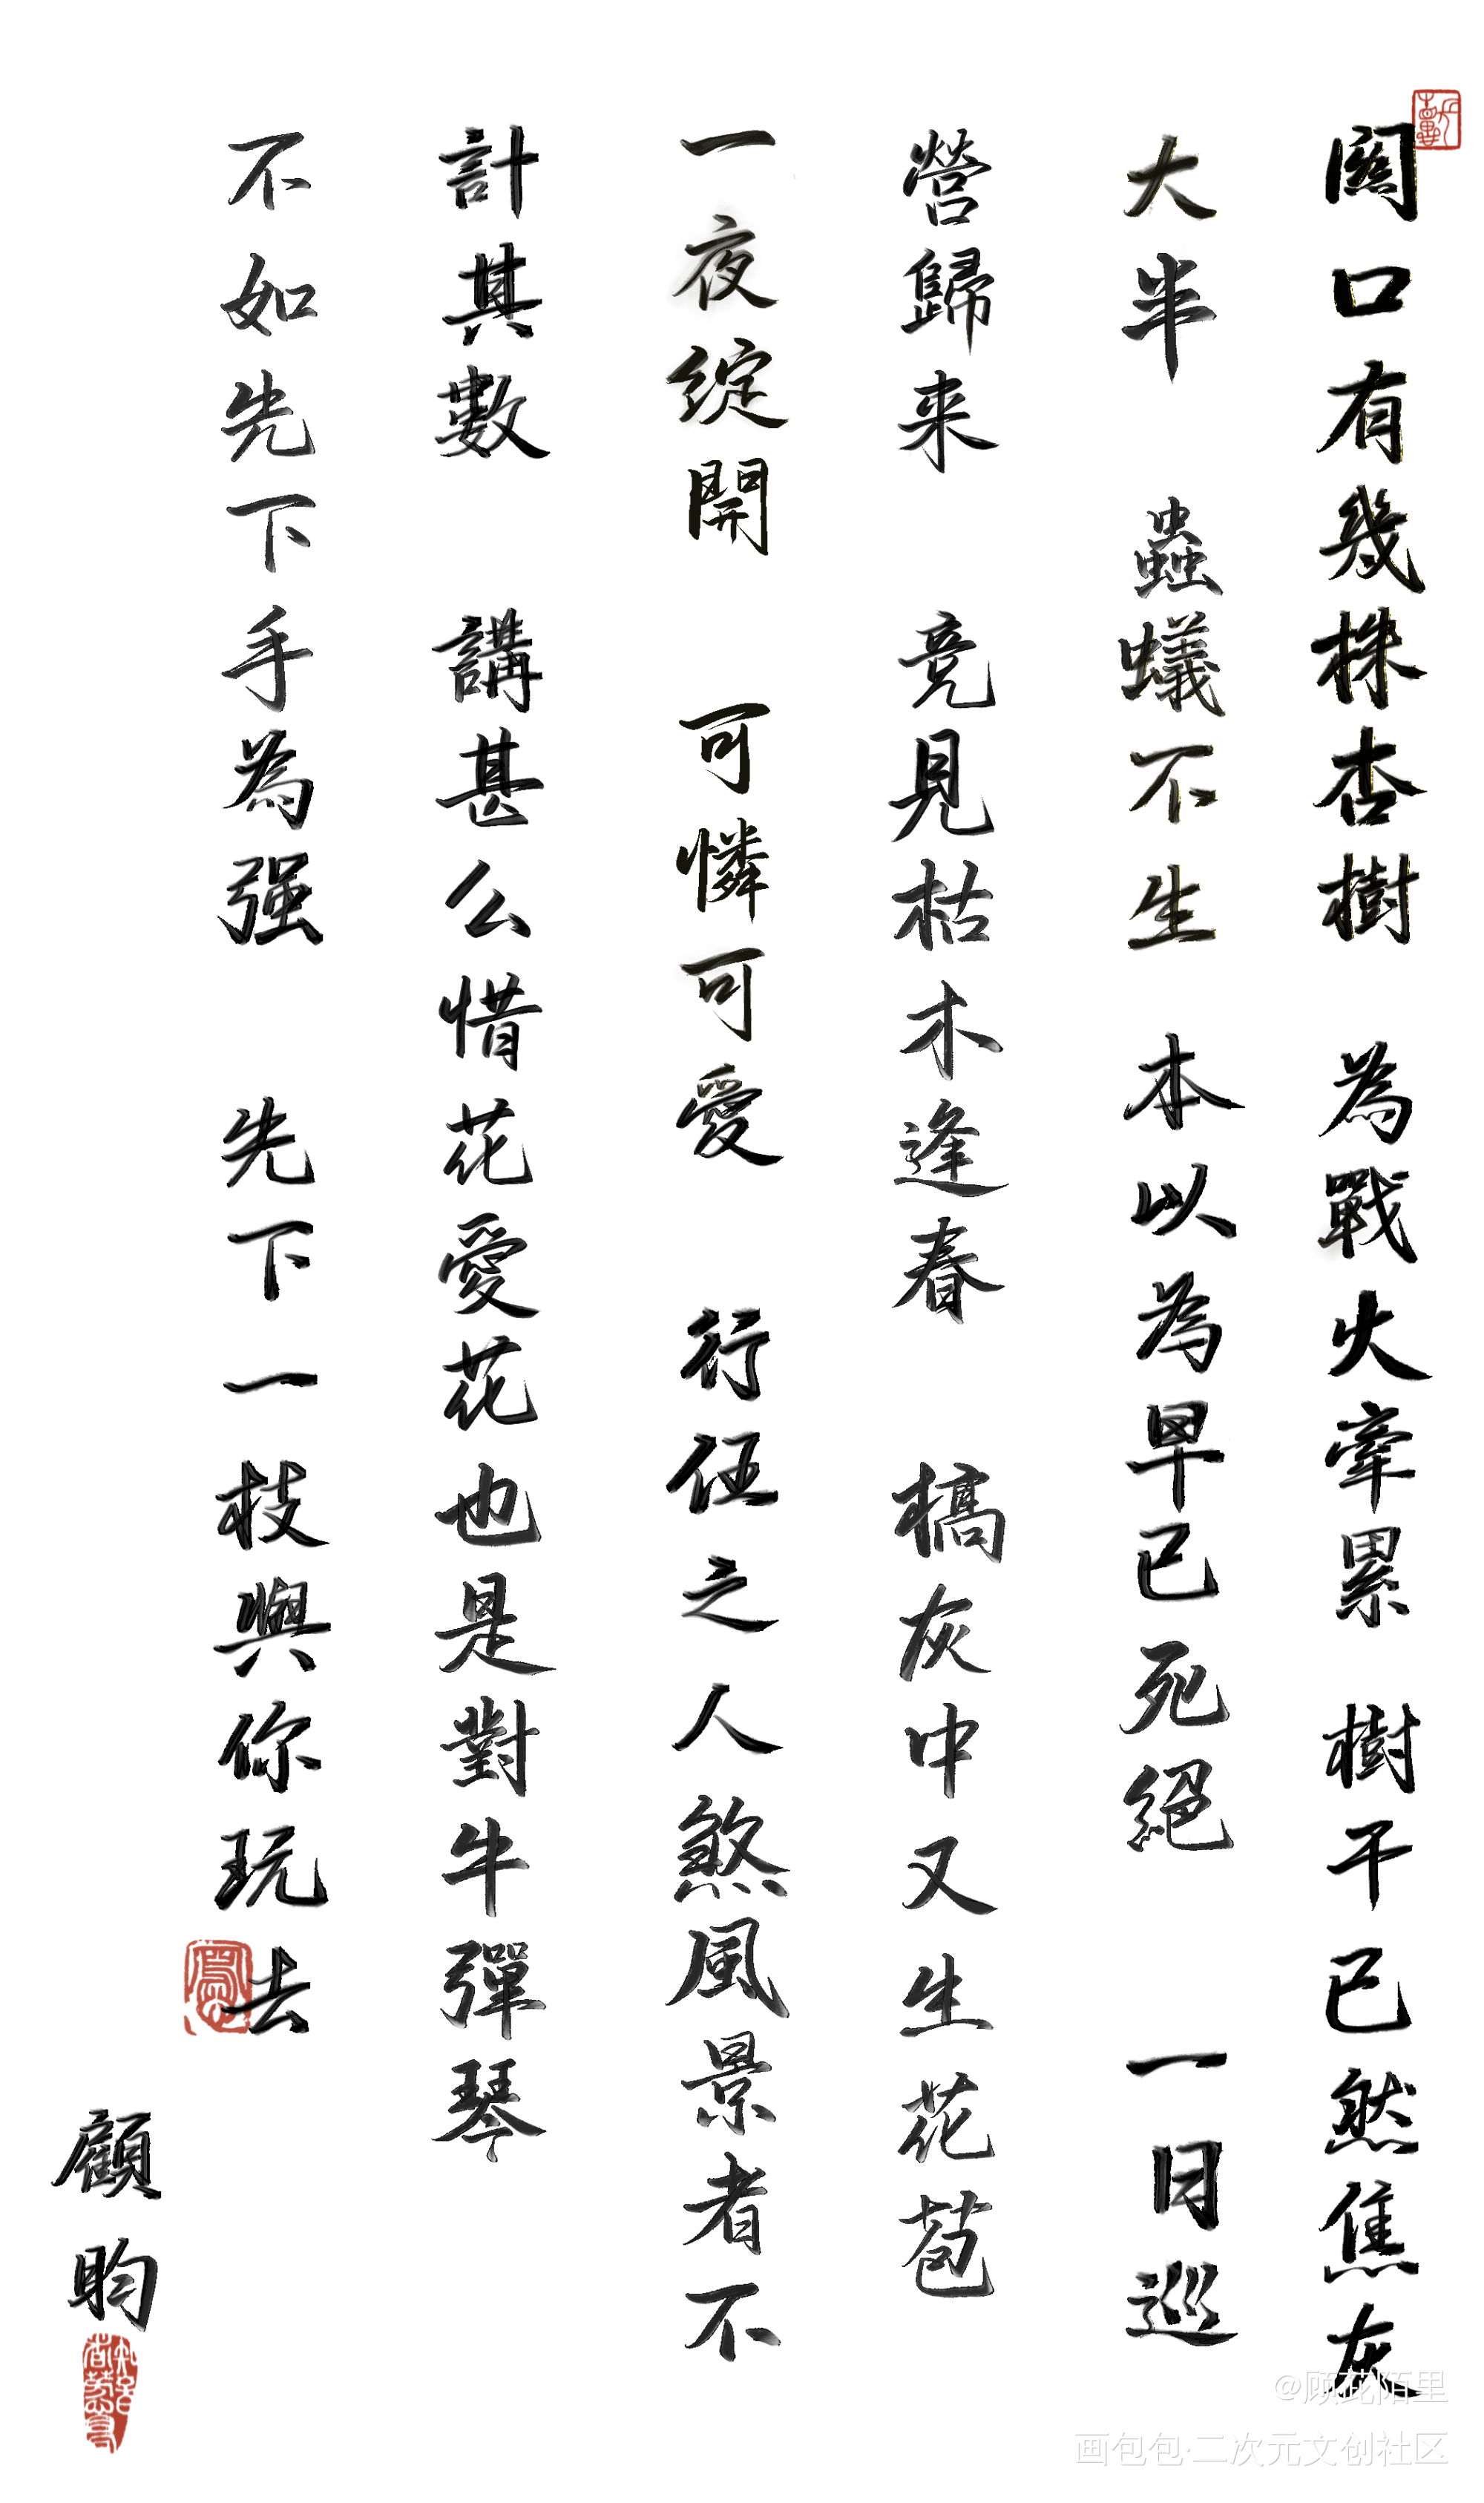 関口有幾株杏樹 為戰火牽累 樹干已然焦灰
大半 蟲蟻不生 本以為早已死絕 一日巡
營歸来 竟見枯木逢春 槁灰中又生花苞
一夜綻開 可憐可愛 行伍之人煞風景者不
計其數 講甚么惜花愛花也是對牛彈琴
不如先下手為强 先下一枝與你玩去
顧昀
@顾花陌里
画包包·二次元文创社区